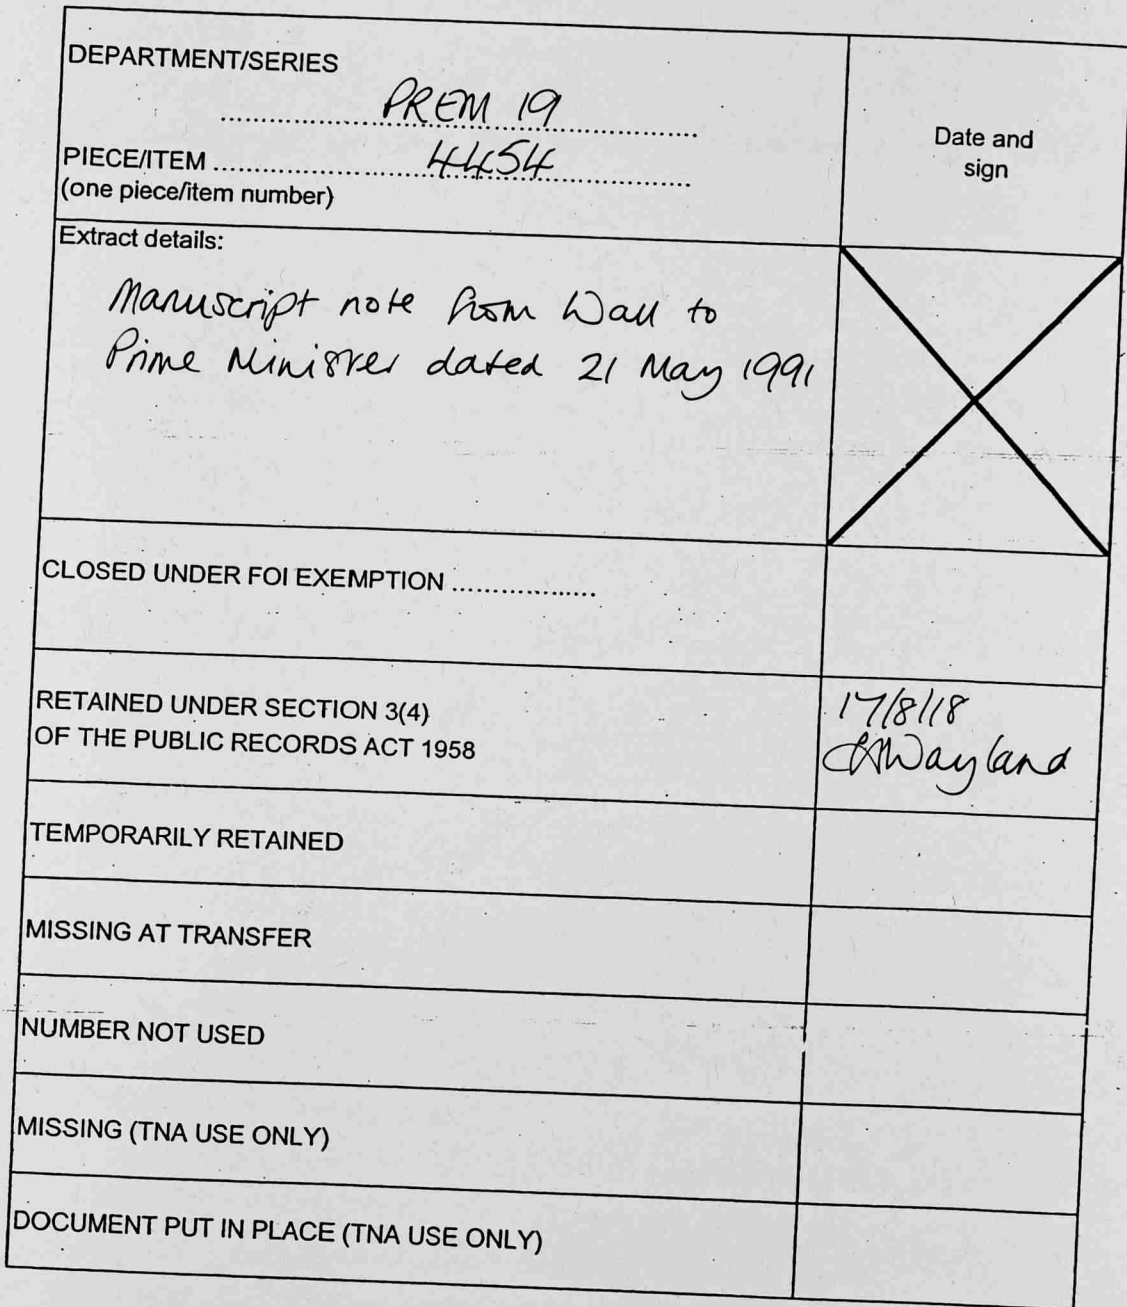 DEPARTMENT/SERIES
PREM 19
PIECE/ITEM 4454
(one piece/item number)
Date and
sign
Extract details:
Manuscript note from Wall to
Prime Minister dated 21 May 1991
CLOSED UNDER FOI EXEMPTION ..................
RETAINED UNDER SECTION 3(4)
OF THE PUBLIC RECORDS ACT 1958
17/8/18
Wayland
TEMPORARILY RETAINED
MISSING AT TRANSFER
NUMBER NOT USED
MISSING (TNA USE ONLY)
DOCUMENT PUT IN PLACE (TNA USE ONLY)